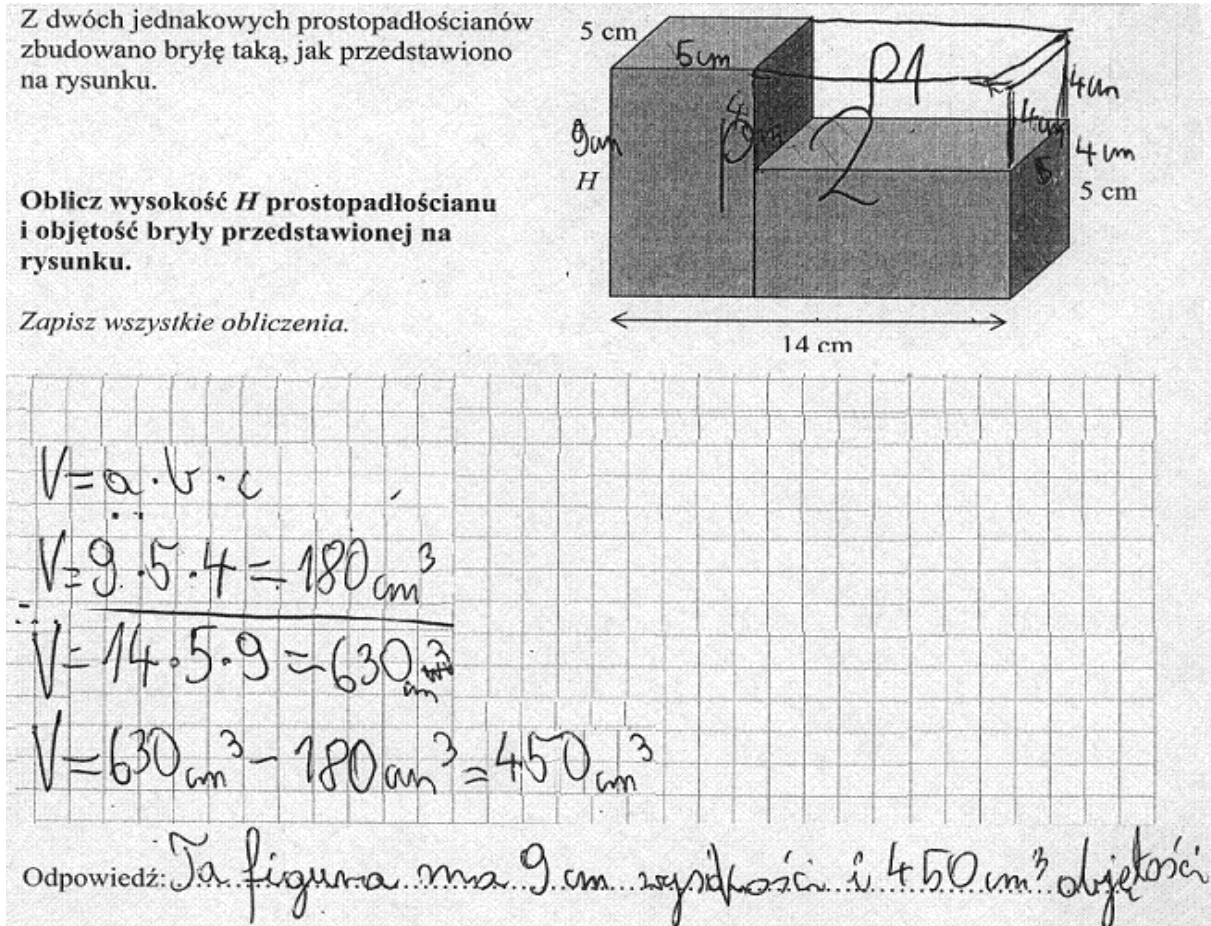 Z dwóch jednakowych prostopadłościanów
zbudowano bryłę taką, jak przedstawiono
na rysunku.
5 cm
5cm
P1
4cm
4cm
9cm
P2
4cm
4 cm
5
H
5 cm
Oblicz wysokość H prostopadłościanu
i objętość bryły przedstawionej na
rysunku.
Zapisz wszystkie obliczenia.
14 cm
V=a·b·c
V=9·5·4=180cm³
V=14·5·9=630cm³
V=630cm³-180cm³=450cm³
Odpowiedź: Ta figura ma 9 cm wysokości i 450 cm³ objętości